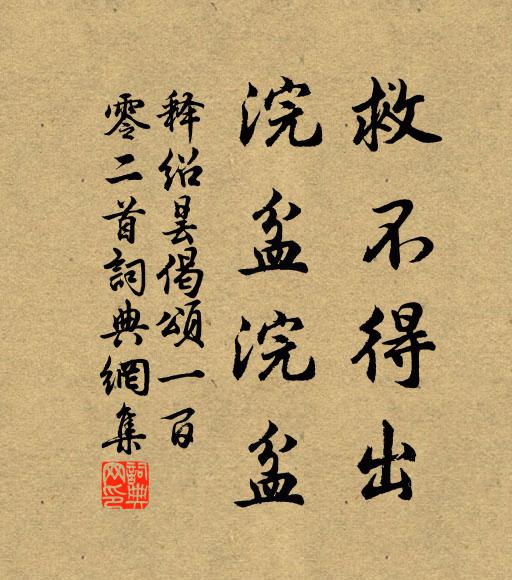 救不得出
浣盆浣盆
释绍昙偈頌一百
零二首詞典網集
詞典
网印